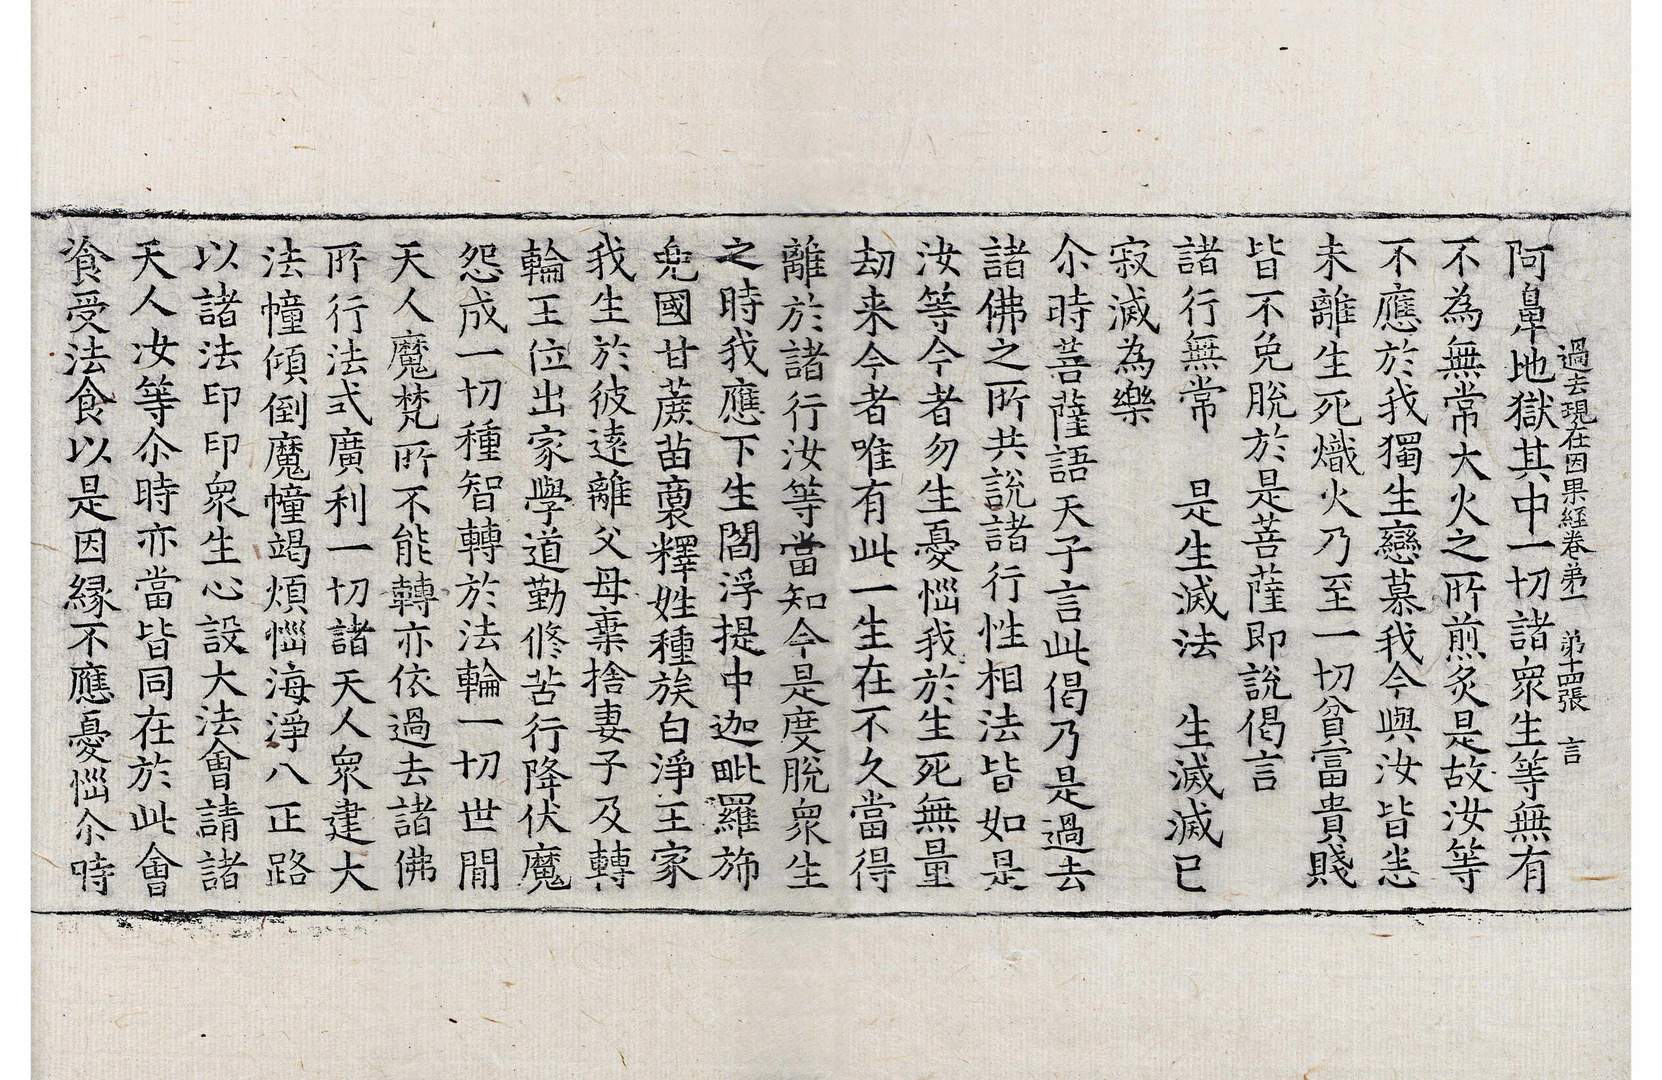 過去現在因果経卷苐一　苐十四張　言
阿鼻地獄其中一切諸衆生等無有
不為無常大火之所煎炙是故汝等
不應於我獨生戀慕我今與汝皆悉
未離生死熾火乃至一切貧富貴賤
皆不免脫於是菩薩即說偈言
諸行無常　是生滅法　生滅滅已
寂滅為樂
尒時菩薩語天子言此偈乃是過去
諸佛之所共說諸行性相法皆如是
汝等今者勿生憂惱我於生死無量
劫来今者唯有此一生在不久當得
離於諸行汝等當知今是度脫衆生
之時我應下生閻浮提中迦毗羅斾
兜國甘蔗苗裔釋姓種族白淨王家
我生於彼遠離父母棄捨妻子及轉
輪王位出家學道勤修苦行降伏魔
怨成一切種智轉於法輪一切世閒
天人魔梵所不能轉亦依過去諸佛
所行法式廣利一切諸天人衆建大
法幢傾倒魔幢竭煩惱海淨八正路
以諸法印印衆生心設大法會請諸
天人汝等尒時亦當皆同在於此會
飡受法食以是因縁不應憂惱尒時